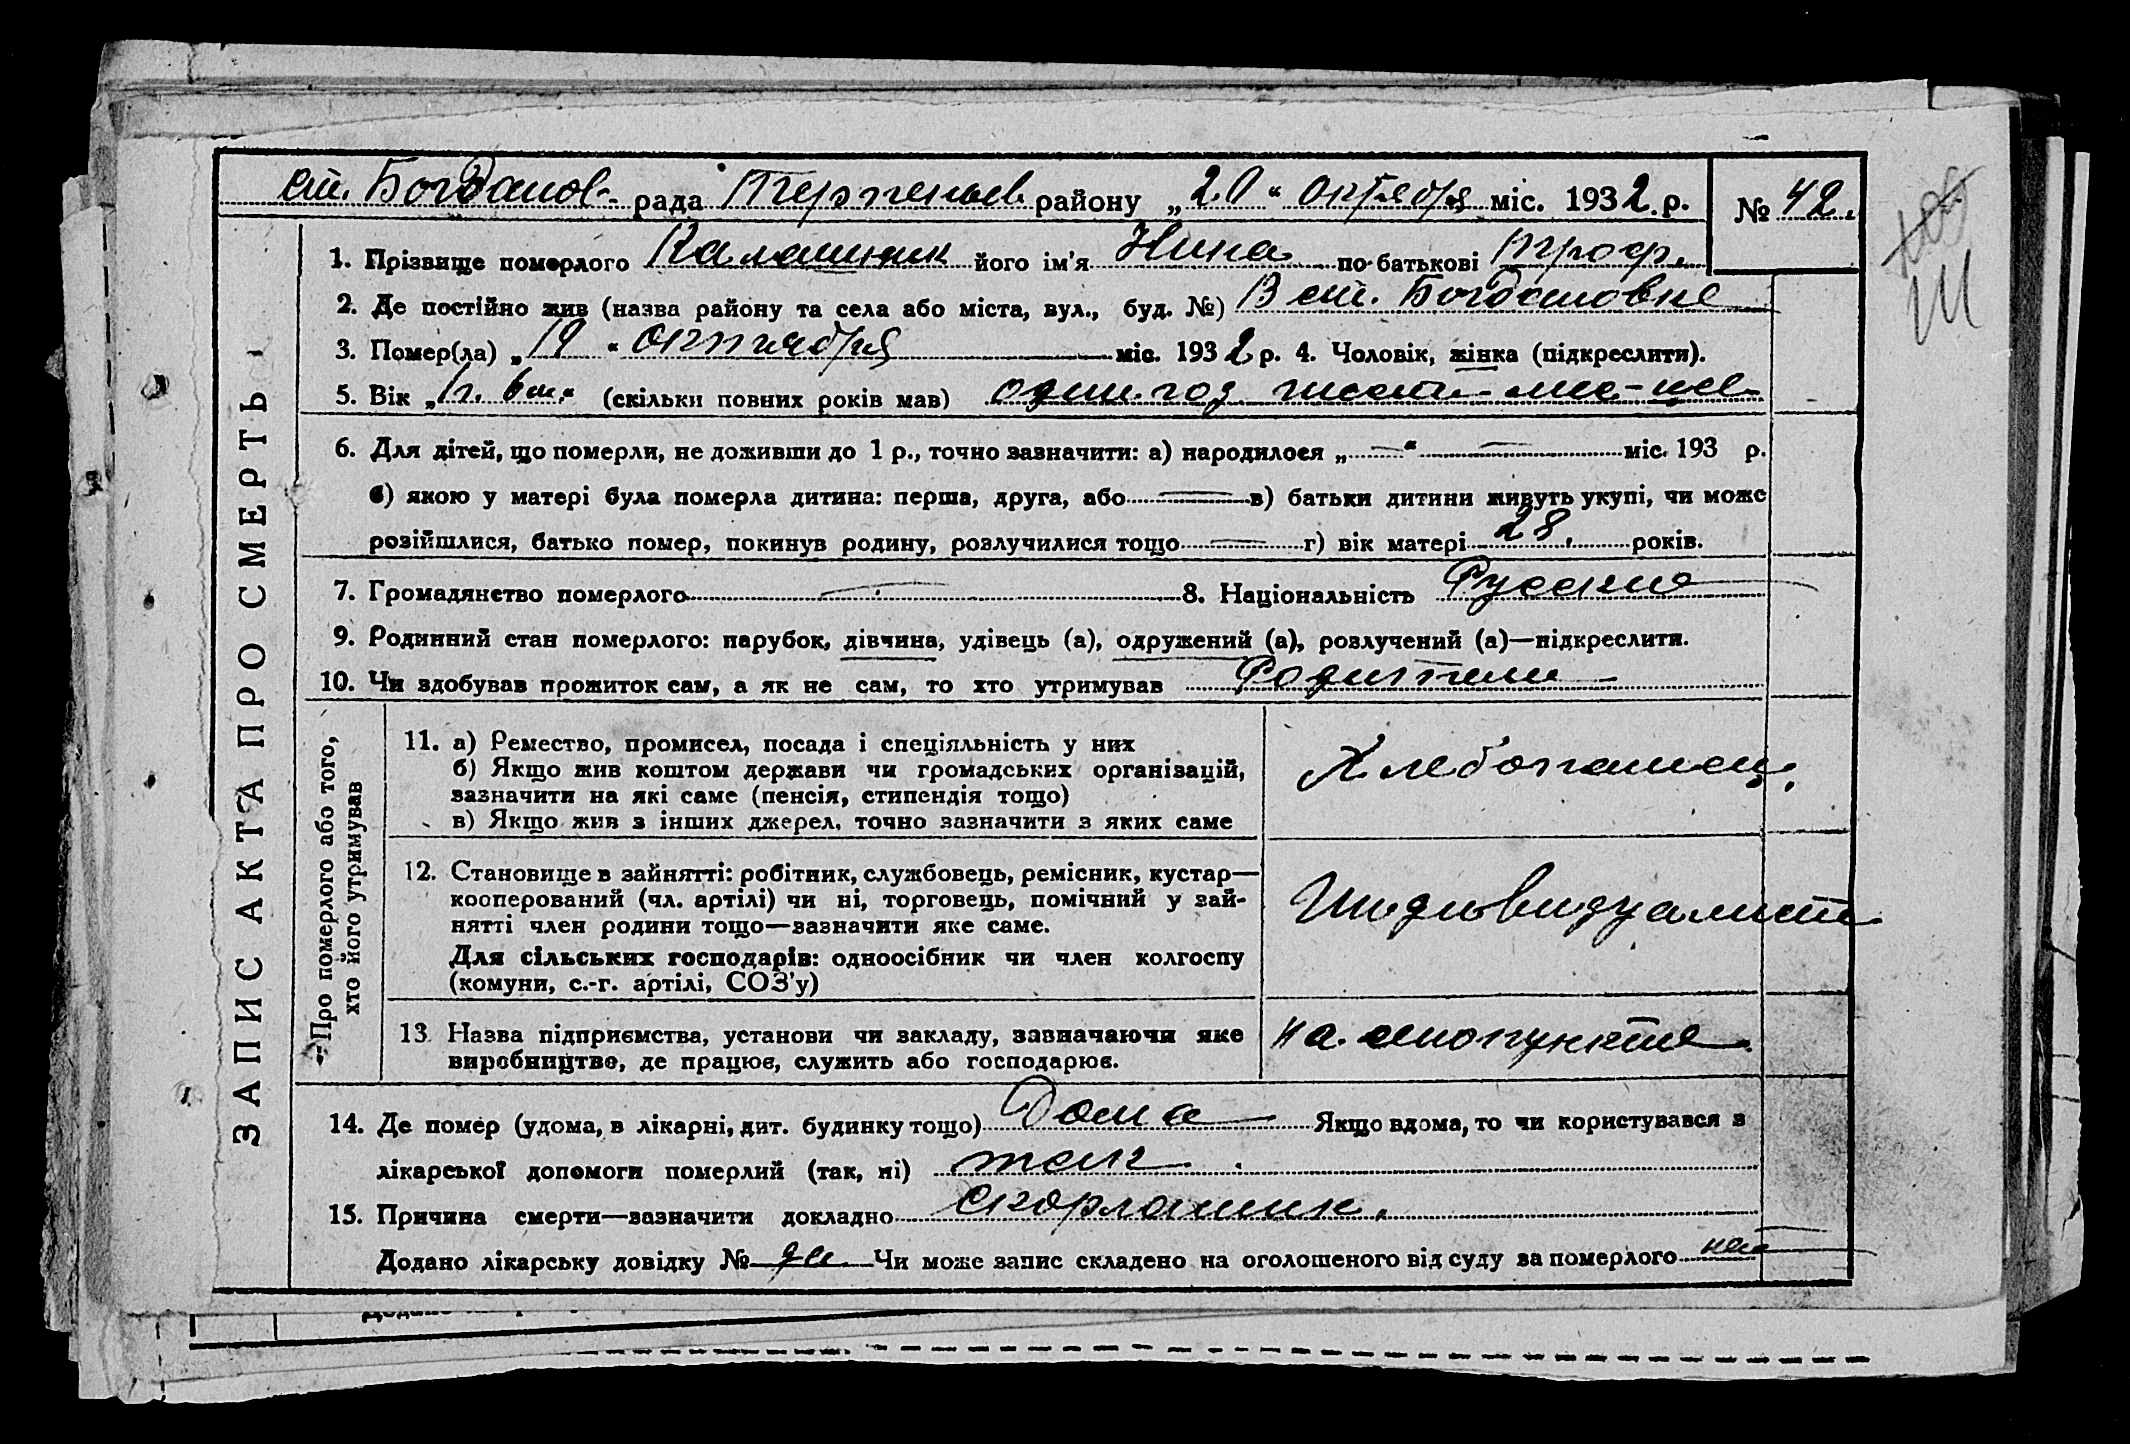 ст. Богданов. рада Терпеньев. району „20“ октября міс. 1932 р. № 42.
1. Прізвище померлого Калашник його ім'я Нина по-батькові Троф.
2. Де постійно жив (назва району та села або міста, вул., буд. №) В ст. Богдановке
3. Помер(ла) „19“ октября міс. 1932 р. 4. Чоловік, жінка (підкреслити).
5. Вік „1г. 6м.“ (скільки повних років мав) один год шесть мес-цев
6. Для дітей, що померли, не доживши до 1 р., точно зазначити: а) народилося „—“ — міс. 193 р.
б) якою у матері була померла дитина: перша, друга, або — в) батьки дитини живуть укупі, чи може
розійшлися, батько помер, покинув родину, розлучилися тощо — г) вік матері 28. років.
7. Громадянство померлого — 8. Національність Руские
9. Родинний стан померлого: парубок, дівчина, удівець (а), одружений (а), розлучений (а)—підкреслити.
10. Чи здобував прожиток сам, а як не сам, то хто утримував Родители
ЗАПИС АКТА ПРО СМЕРТЬ
Про померлого або того,
хто його утримував
11. а) Ремество, промисел, посада і спеціяльність у них
б) Якщо жив коштом держави чи громадських організацій,
зазначити на які саме (пенсія, стипендія тощо)
в) Якщо жив з інших джерел, точно зазначити з яких саме
Хлебопашец.
12. Становище в зайнятті: робітник, службовець, ремісник, кустар—
кооперований (чл. артілі) чи ні, торговець, помічний у зай-
нятті член родини тощо—зазначити яке саме.
Для сільських господарів: одноосібник чи член колгоспу
(комуни, с.-г. артілі, СОЗ'у)
Индивидуалист
13. Назва підприємства, установи чи закладу, зазначаючи яке
виробництво, де працює, служить або господарює.
на
14. Де помер (удома, в лікарні, дит. будинку тощо) Дома Якщо вдома, то чи користувався з
лікарської допомоги померлий (так, ні) так.
15. Причина смерти—зазначити докладно
Додано лікарську довідку № да Чи може запис складено на оголошеного від суду за померлого